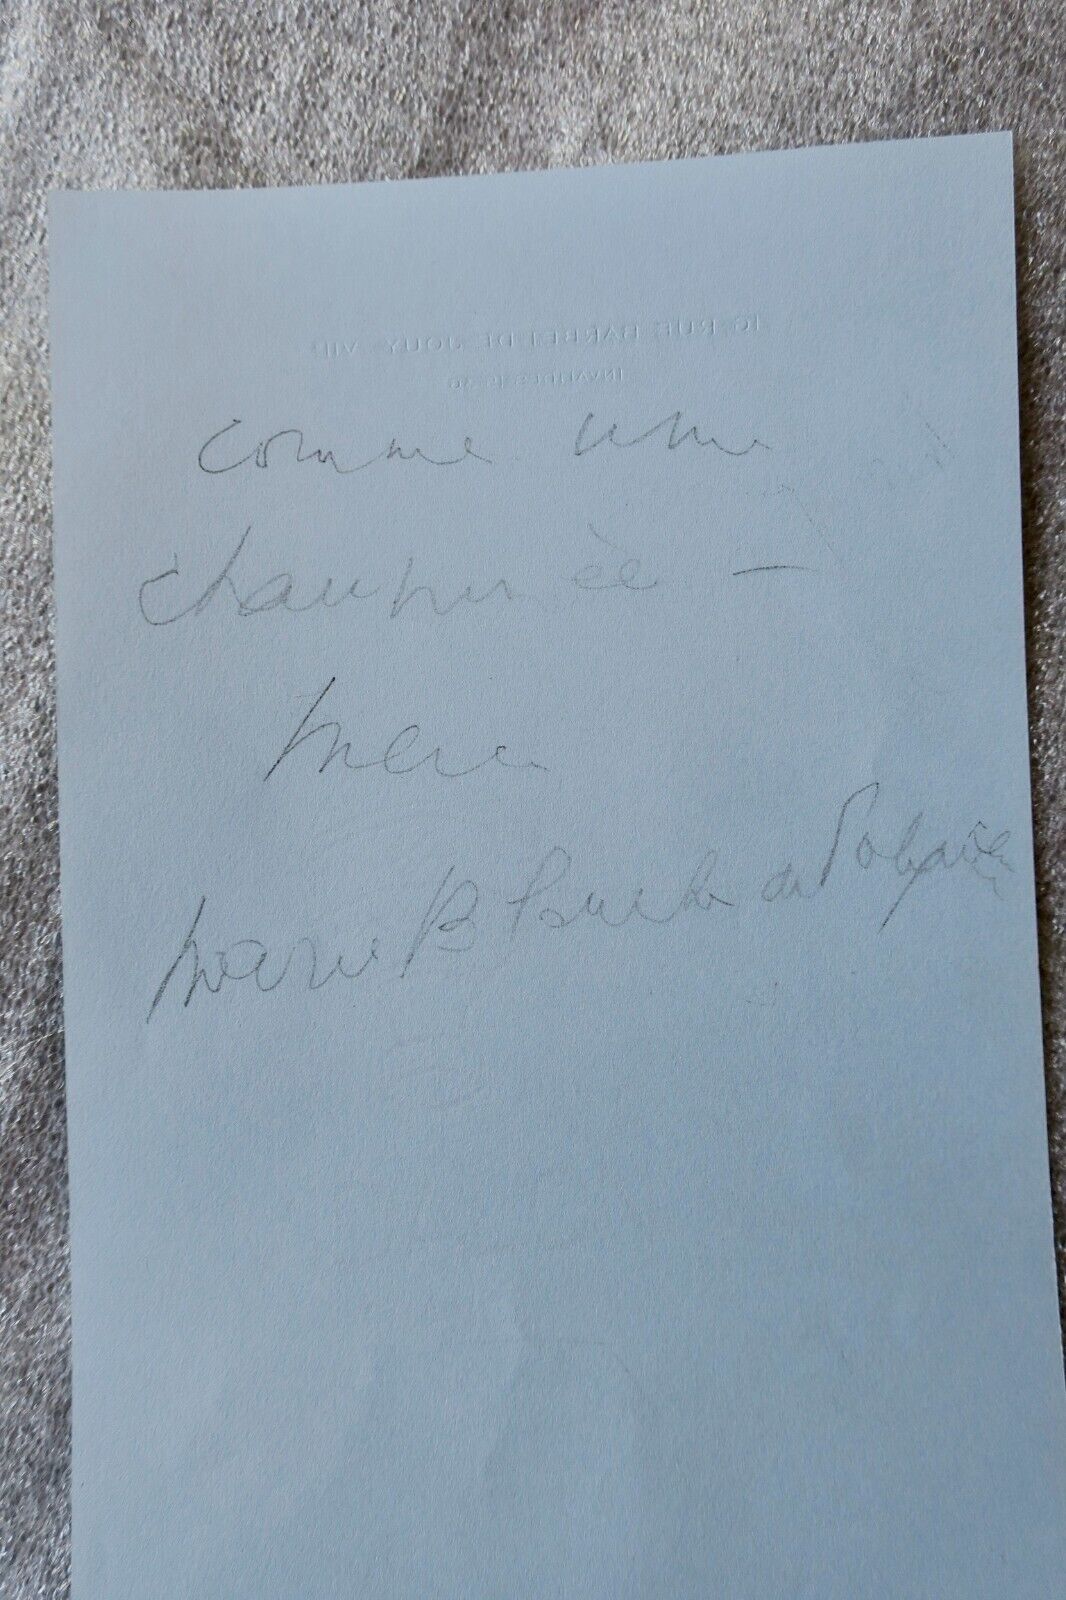 16 RUE BARBET DE JOUY. VIIe
INVALIDES
comme une
—
Merci
Marie Blanche de Polignac